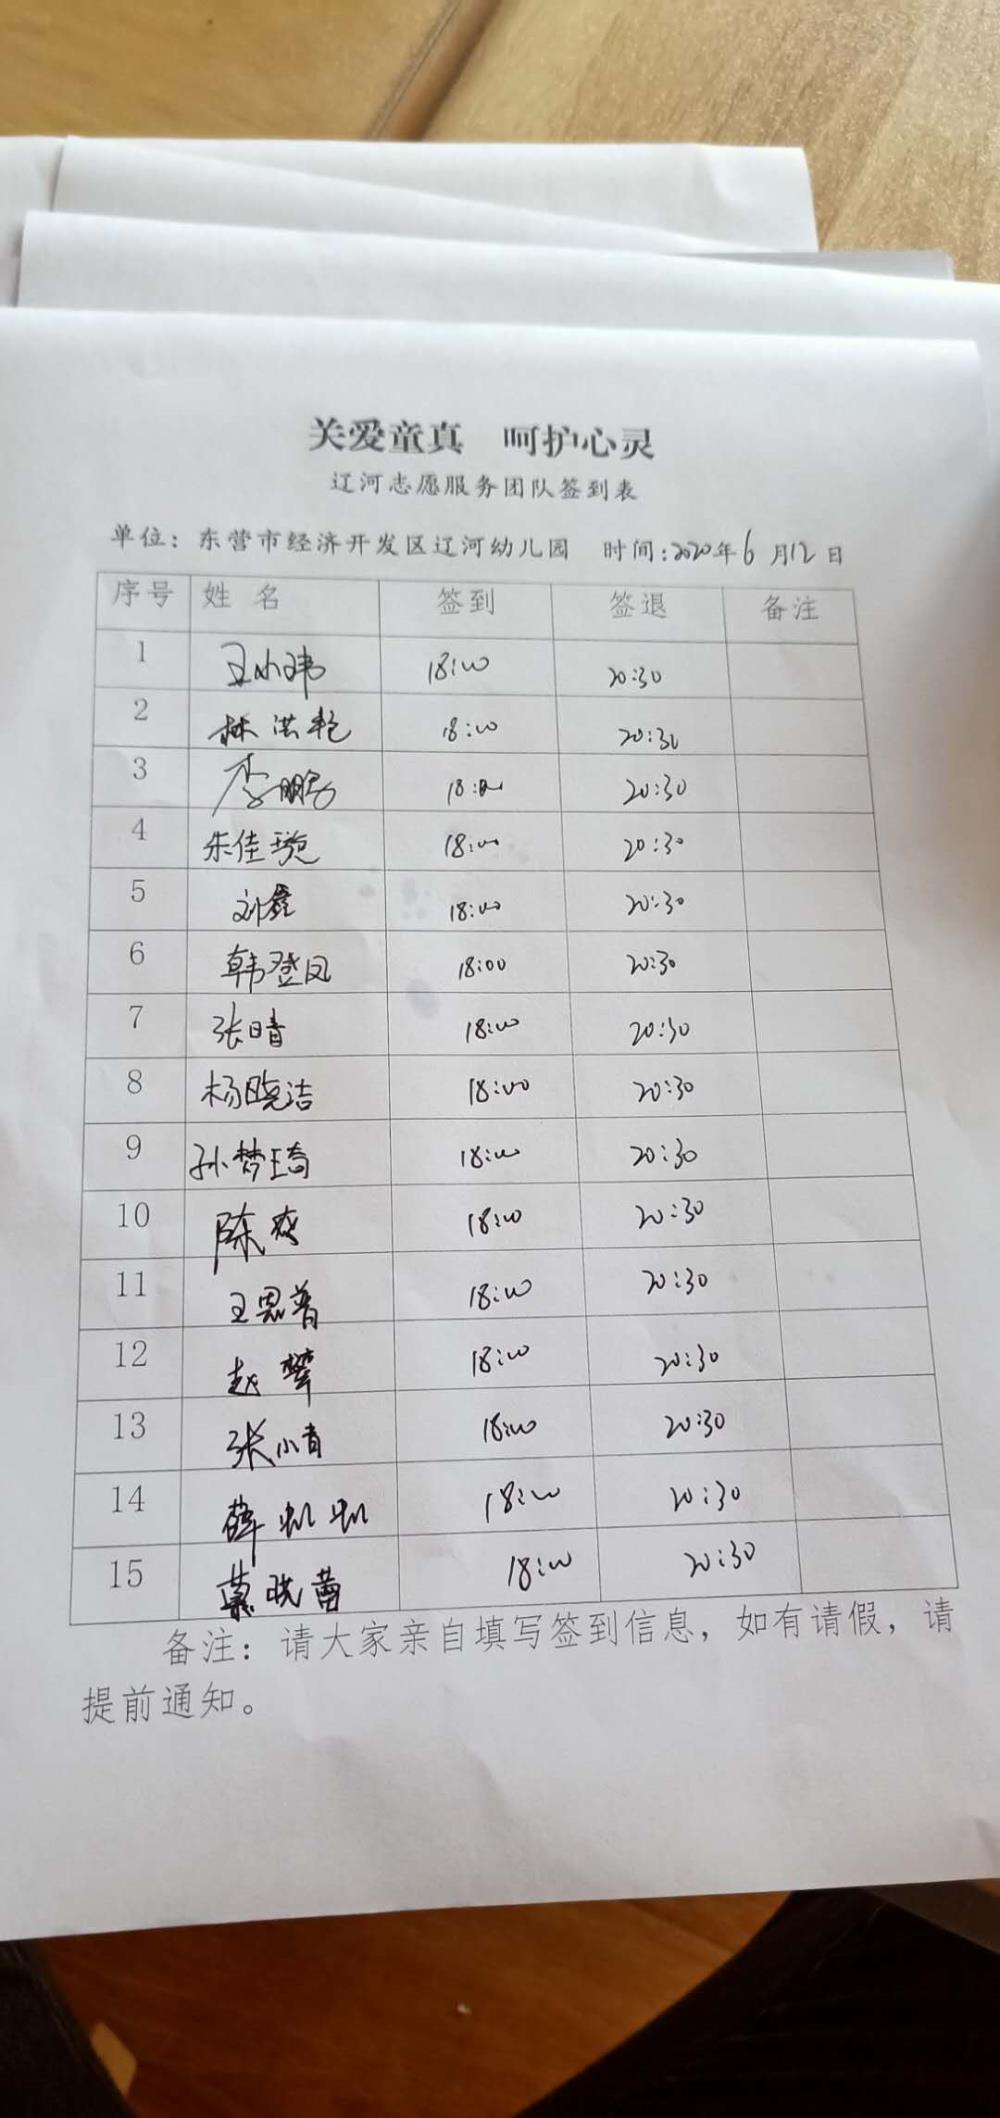 关爱童真 呵护心灵
辽河志愿服务团队签到表
单位：东营市经济开发区辽河幼儿园 时间：2020年6月12日
序号 姓名 签到 签退 备注
1 王小玮 18:00 20:30
2 林洪艳 18:00 20:30
3 李鹏 18:00 20:30
4 朱佳 18:00 20:30
5 刘鑫 18:00 20:30
6 韩登凤 18:00 20:30
7 张晴 18:00 20:30
8 杨晓洁 18:00 20:30
9 孙梦琦 18:00 20:30
10 陈 18:00 20:30
11 王恩普 18:00 20:30
12 赵攀 18:00 20:30
13 张小青 18:00 20:30
14 薛虹虹 18:00 20:30
15 晓蕾 18:00 20:30
备注：请大家亲自填写签到信息，如有请假，请
提前通知。